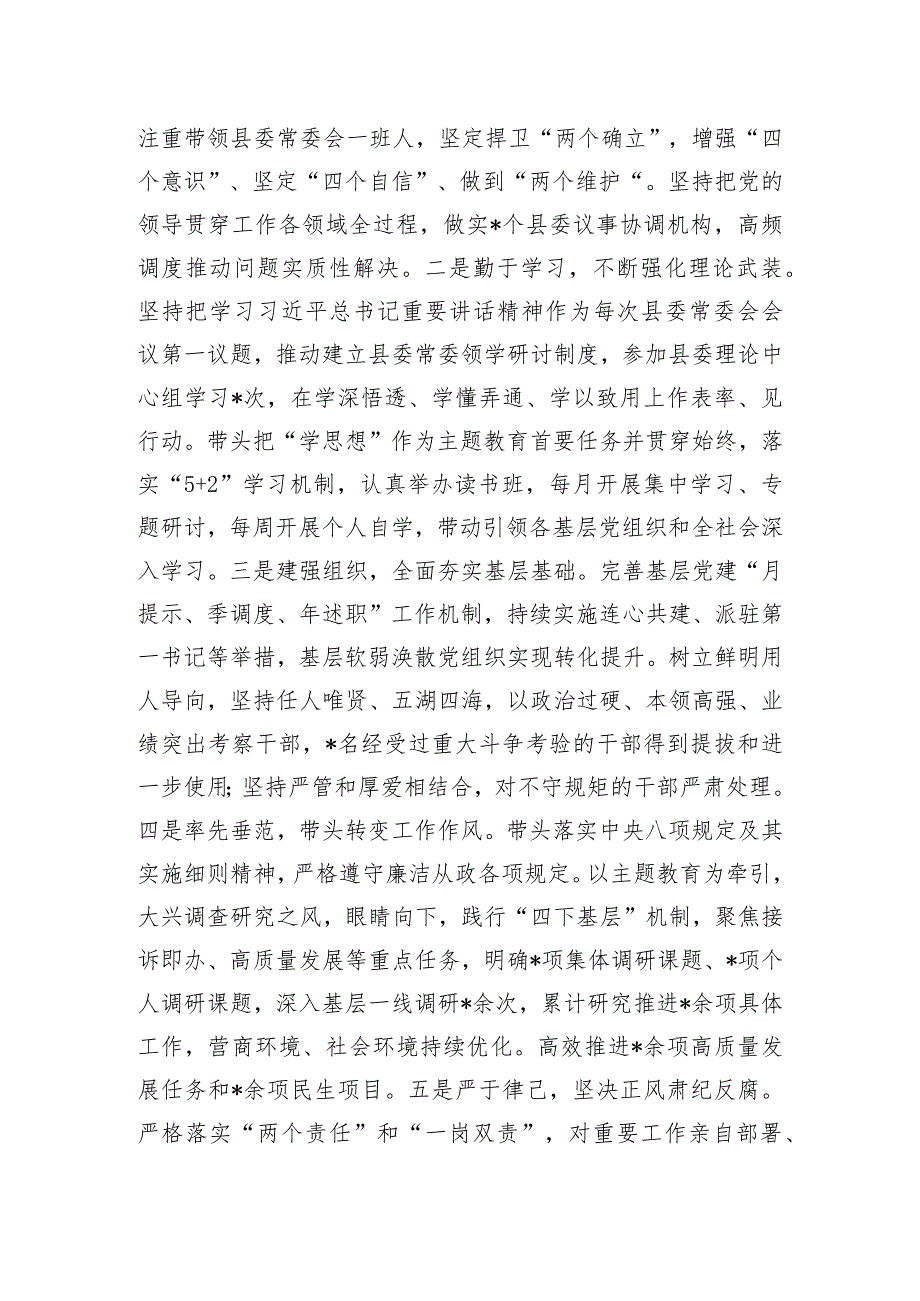 注重带领县委常委会一班人，坚定捍卫“两个确立”，增强“四
个意识”、坚定“四个自信”、做到“两个维护“。坚持把党的
领导贯穿工作各领域全过程，做实*个县委议事协调机构，高频
调度推动问题实质性解决。二是勤于学习，不断强化理论武装。
坚持把学习习近平总书记重要讲话精神作为每次县委常委会会
议第一议题，推动建立县委常委领学研讨制度，参加县委理论中
心组学习*次，在学深悟透、学懂弄通、学以致用上作表率、见
行动。带头把“学思想”作为主题教育首要任务并贯穿始终，落
实“5+2”学习机制，认真举办读书班，每月开展集中学习、专
题研讨，每周开展个人自学，带动引领各基层党组织和全社会深
入学习。三是建强组织，全面夯实基层基础。完善基层党建“月
提示、季调度、年述职”工作机制，持续实施连心共建、派驻第
一书记等举措，基层软弱涣散党组织实现转化提升。树立鲜明用
人导向，坚持任人唯贤、五湖四海，以政治过硬、本领高强、业
绩突出考察干部，*名经受过重大斗争考验的干部得到提拔和进
一步使用；坚持严管和厚爱相结合，对不守规矩的干部严肃处理。
四是率先垂范，带头转变工作作风。带头落实中央八项规定及其
实施细则精神，严格遵守廉洁从政各项规定。以主题教育为牵引，
大兴调查研究之风，眼睛向下，践行“四下基层”机制，聚焦接
诉即办、高质量发展等重点任务，明确*项集体调研课题、*项个
人调研课题，深入基层一线调研*余次，累计研究推进*余项具体
工作，营商环境、社会环境持续优化。高效推进*余项高质量发
展任务和*余项民生项目。五是严于律己，坚决正风肃纪反腐。
严格落实“两个责任”和“一岗双责”，对重要工作亲自部署、